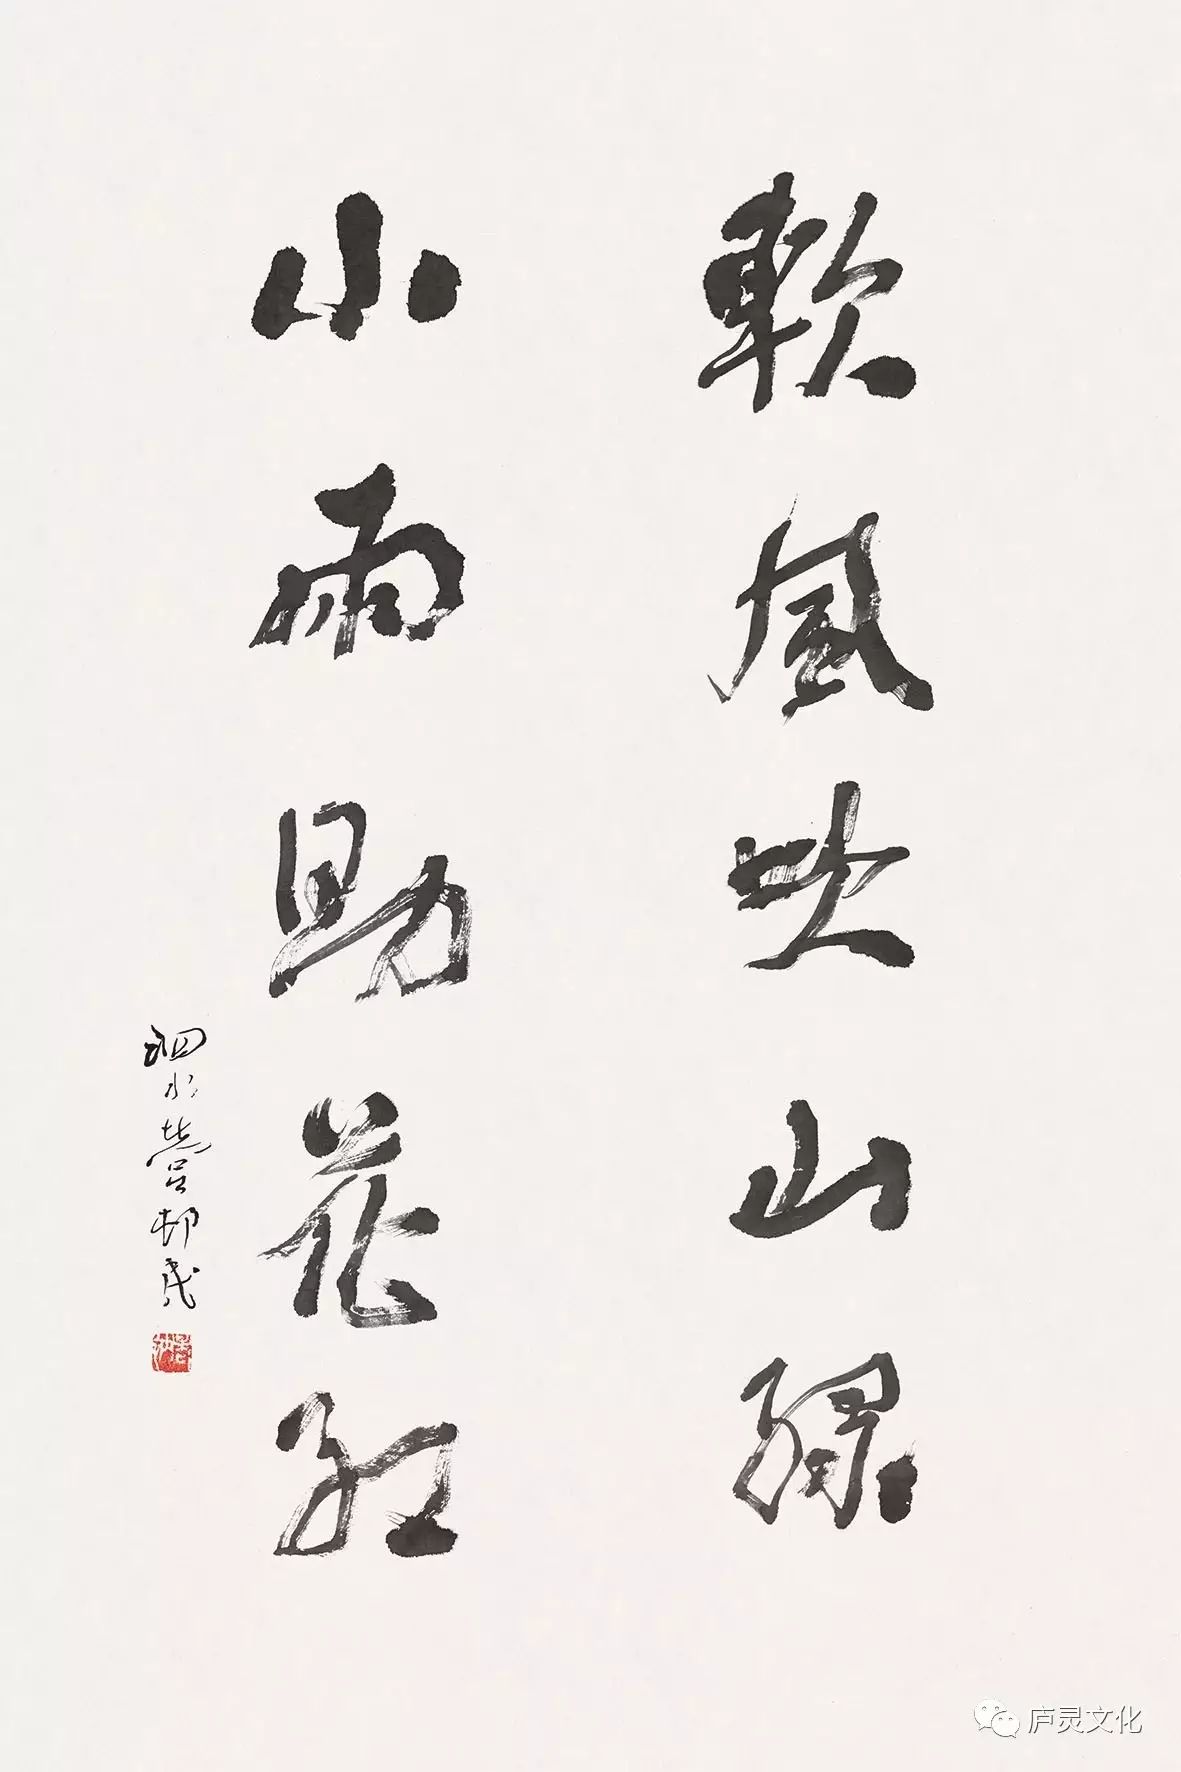 軟風吹山綠
小雨助花紅
泗水營邨民
庐灵文化